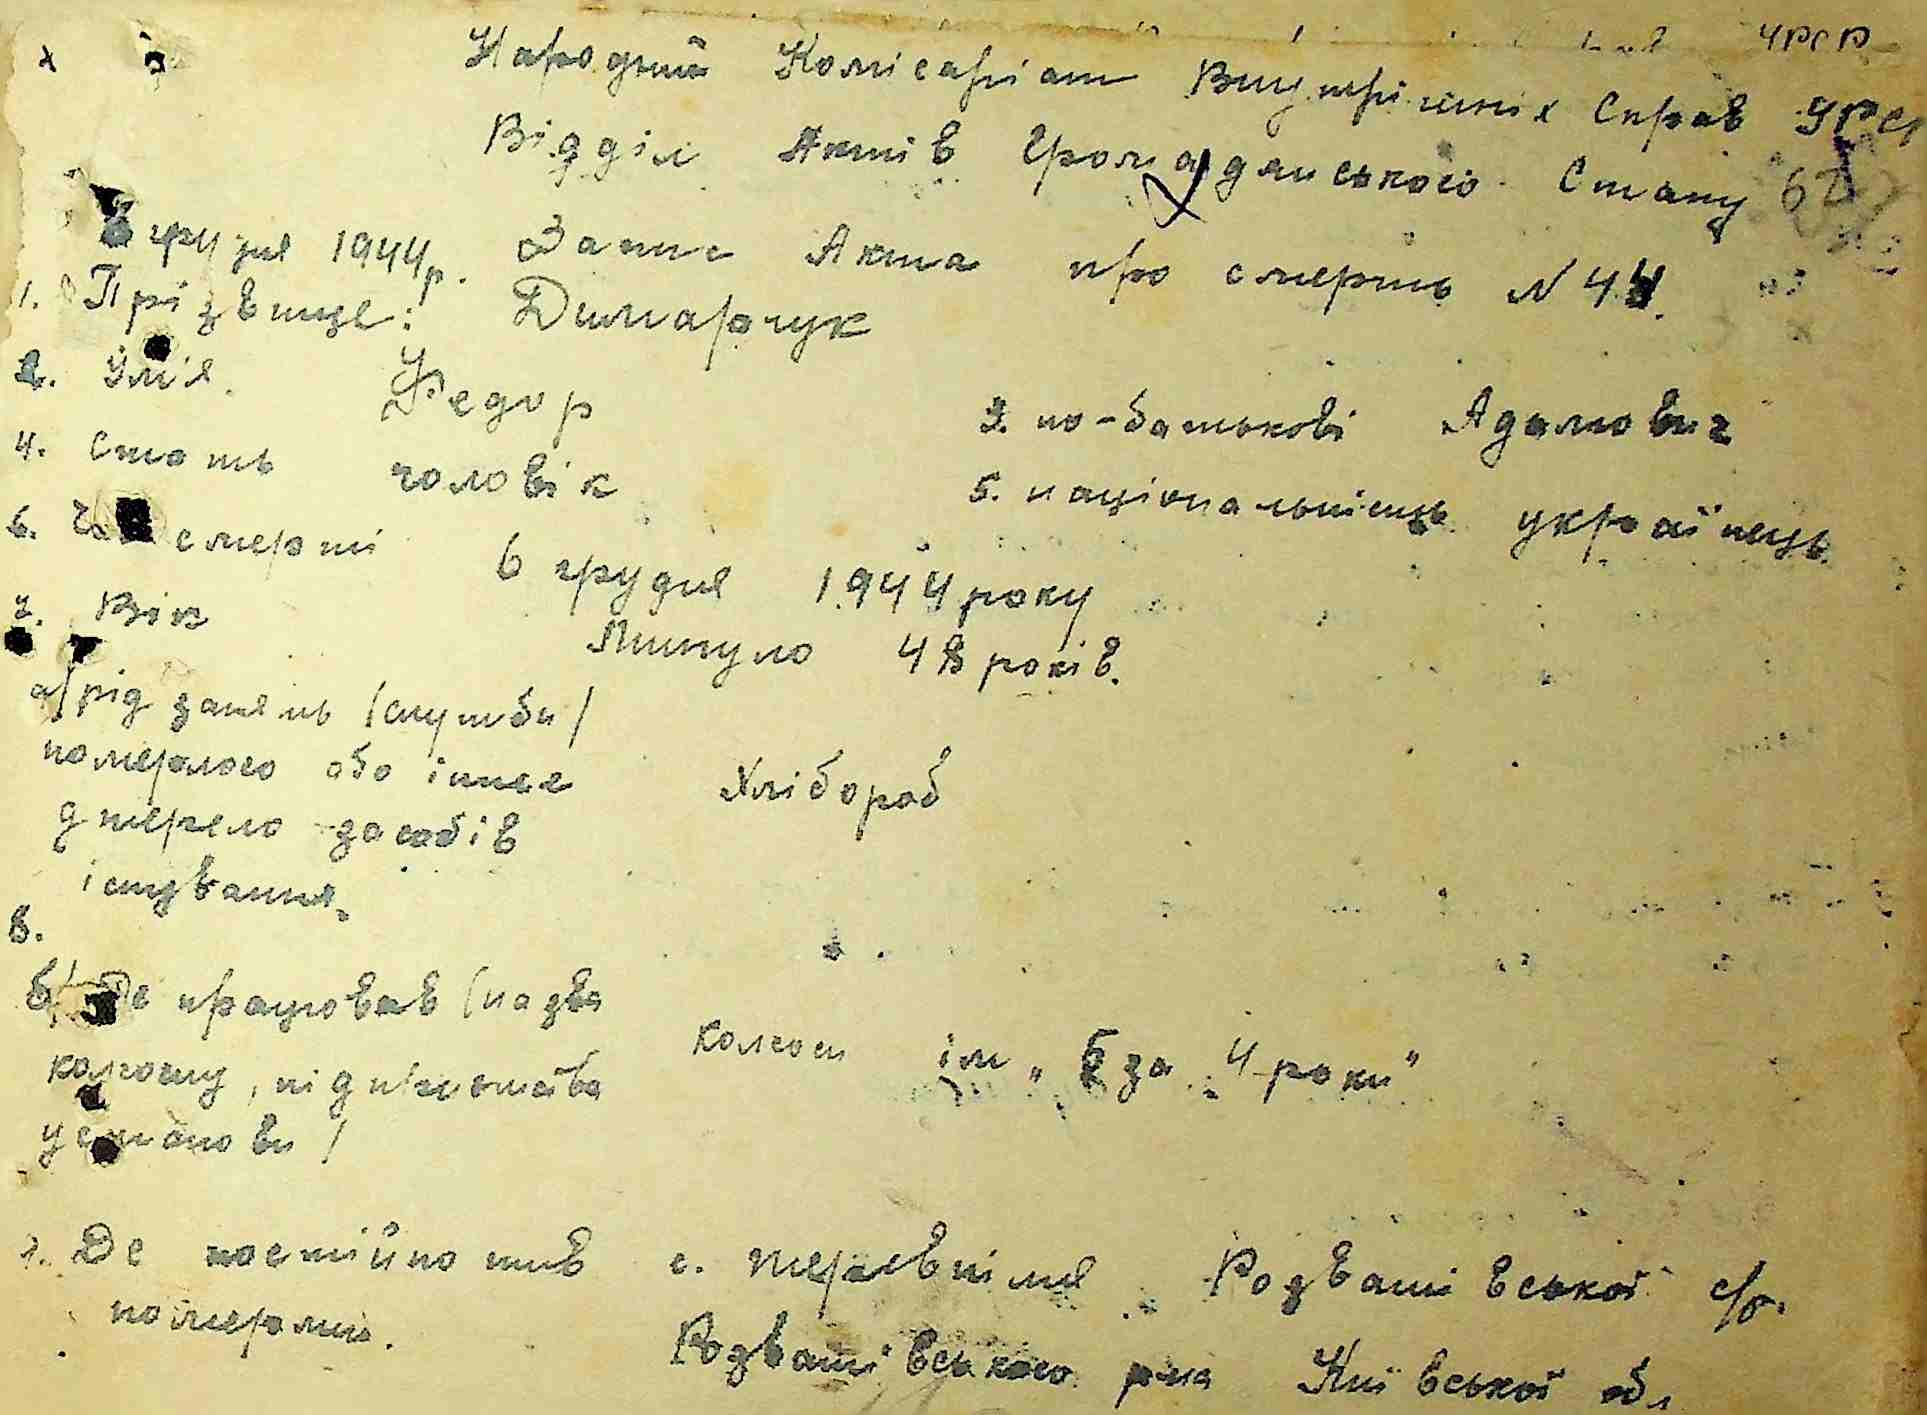 УРСР
Народній Комісаріат Внутрішніх Справ УРСР
Відділ Актів Громадянського Стану
грудня 1944р. Запис Акта про смерть N 44.
1. Прізвище: Димарчук
2. Ім'я. Федор 3. по-батькові Адамович
4. Стать чоловік 5. національність українець.
6. Час смерти 6 грудня 1944 року
7. Вік Минуло 48 років.
а/ рід занять /служби/
померлого або інше
джерело засобів Хлібороб
існування.
8.
б/ Де працював (назва
колгоспу, підприємства колгосп ім „5 за 4 роки"
установи/
9. Де постійно жив с. Розважівської с/р.
померлий. Розважівського р-на Київської обл